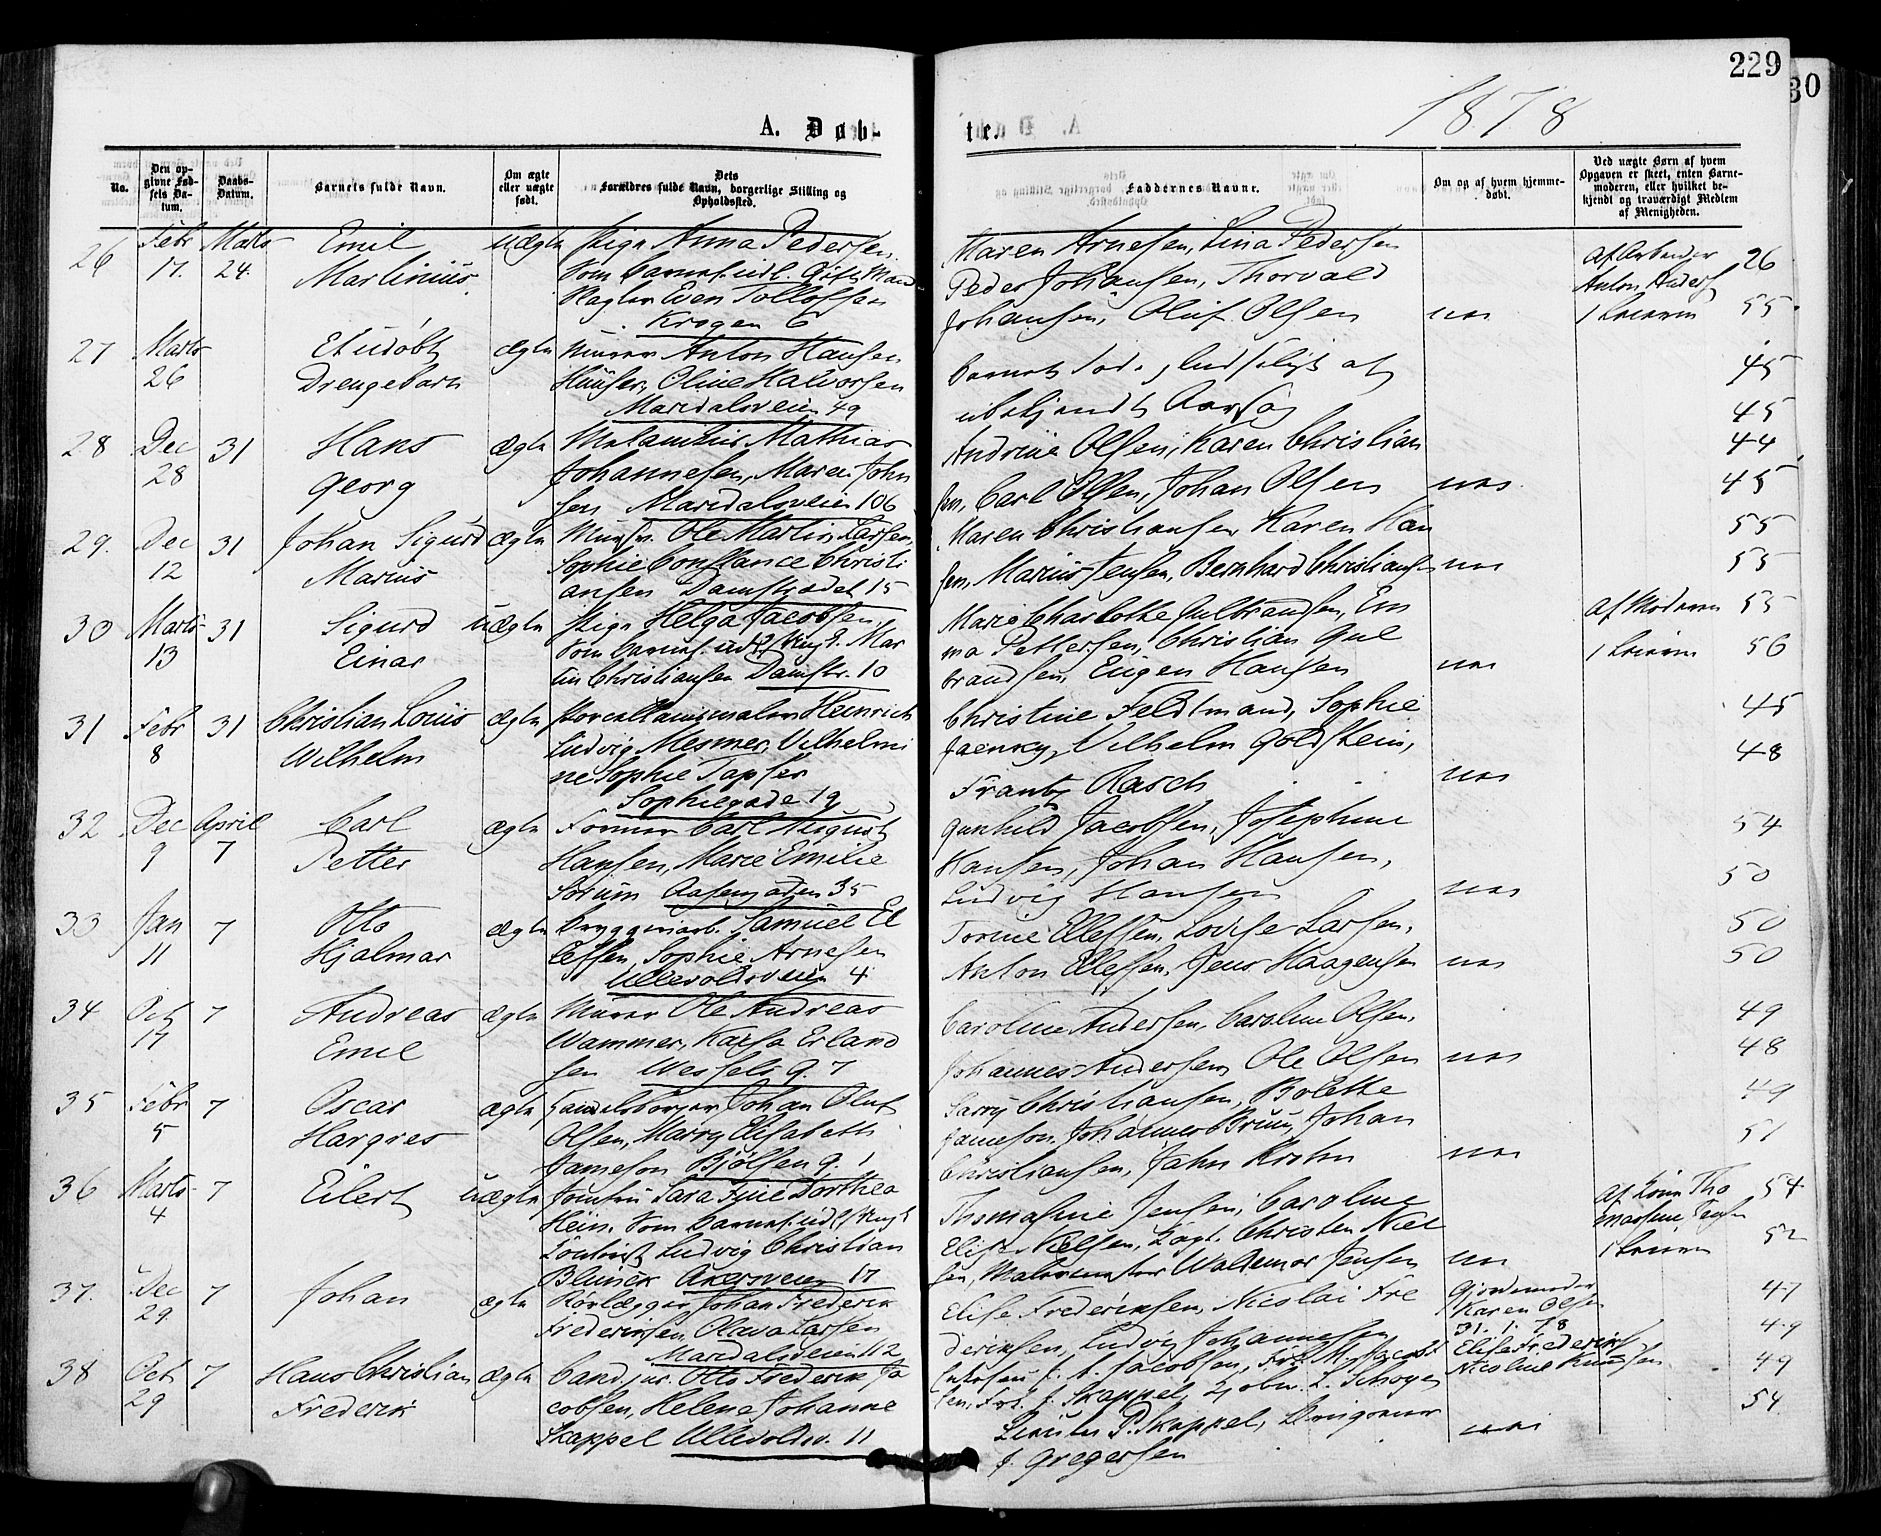 229
30
1878
A. Døb-
te.
No.
Den op-
givne Fød-
sels Da-
tum.
Daabs-
Datum.
Barnets fulde Navn.
Om ægte
eller uægte
født.
Dets
Forældres fulde Navn, borgerlige Stilling og
Opholdssted.
Faddernes Navne.
Om og af hvem hjemme-
døbt.
Ved uægte Børn af hvem
Opgaven er skeet, enten Barne-
moderen, eller hvilket be-
kjendt og troværdigt Medlem
af Menigheden.
26 Febr Marts Emil uægte Pige Anna Pedersen
17. 24. Martinius. Som Barnef. udl. Gift Mand
Even Tollofsen
Krogen 6
Maren Arnesen, Lina Pedersen
Peder Johansen, Thorvald
Johansen, Oluf Olsen nei
Af Arbeider
Anton Anders
26
55
27 Marts Et udøbt ægte Murer Anton Hansen
26 Drengebarn Oline Halvorsen
Maridalsveien 49
Barnets Død
ubekjendt Aarsag
45
45
28 Dec 31 Hans ægte Mathias
28 Georg Johannesen, Maren John
sen Maridalsveien 106
Andrine Olsen, Karen Christian
sen, Carl Olsen, Johan Olsen nei
44
45
29. Dec 31 Johan Sigurd ægte Ole Martin Larsen,
12 Marius Sophie Constance Christi
ansen Damstrædet 15
Maren Christiansen Karen Han
sen, Marius Jensen, Bernhard Christiansen nei
55
55
30 Marts 31 Sigurd uægte Pige Helga Jacobsen,
13 Einar Som Barnef. udl. Ungk. Mar
tin Christiansen Damstr. 10
Marie Charlotte Gulbrandsen, Em
ma Pettersen, Christian Gul
brandsen, Eugen Hansen nei
Af Moderen
55
56
31 Febr 31 Christian Louis ægte Porcellainsmaler Heinrich
8 Wilhelm Ludvig Mesmer, Vilhelmi
ne Sophie Tapser
Sophiegade 19
Christine Feldtmand, Sophie
Vilhelm Goldstein,
Frantz Rasch nei
45
48
32 Dec April Carl ægte Former Carl August
9 7 Petter Hansen, Marie Emilie
Sørum Aasengaden 35
Gunhild Jacobsen, Josephine
Hansen, Johan Hansen,
Ludvig Hansen nei
54
50
33 Jan 7 Otto ægte Bryggeriarb. Samuel El
11 Hjalmar lefsen, Sophie Arnesen
Ullevoldsveien 4
Torine Ellefsen, Lovise Larsen,
Anton Ellefsen, Jens Haagensen nei
50
50
34 Oct 7 Andreas ægte Murer Ole Andreas
17 Emil Wammer, Kaisa Erland
sen Wessels g. 7
Caroline Andersen, Caroline Olsen,
Johannes Andersen, Ole Olsen nei
49
48
35 Febr 7 Oscar ægte Handelsborger Johan Oluf
5 Hargres Olsen, Marry Elisabeth
Jameson Bjølsen g. 1
Sarry Christiansen, Bolette
Jameson, Johannes Bruun, Johan
Christiansen, Jahn Krohn nei
49
51
36 Marts 7 Eilert uægte Jomfru Sara Tine Dorthea
4 Hein. Som Barnef. udl. Ungk.
Ludvig Christian
Akersveien 17
Thomasine Jensen, Caroline
Elise Nielsen, Christen Niel
sen, Waldemar Jensen nei
Af Tho
masine Jensen
54
52
37. Dec 7 Johan ægte Rørlægger Johan Frederik
29. Frederiksen, Olava Larsen
Maridalsveien 112
Elise Frederiksen, Nicolai Fre
deriksen, Ludvig Johannesen
Gjordemoder
Karen Olsen
31. 1. 78
Elise Frederiksen
Nicoline Knudsen
47
49
38 Oct 7 Hans Christian ægte Cand. jur. Otto Frederik Ja
29 Frederik cobsen, Helene Johanne
Skappel Ullevoldsv. 11
Jacobsen,
sen, Frk. J. Skappel, Kjøbm. L. Schøyen
P. Skappel,
J. Gregersen
nei
49
54